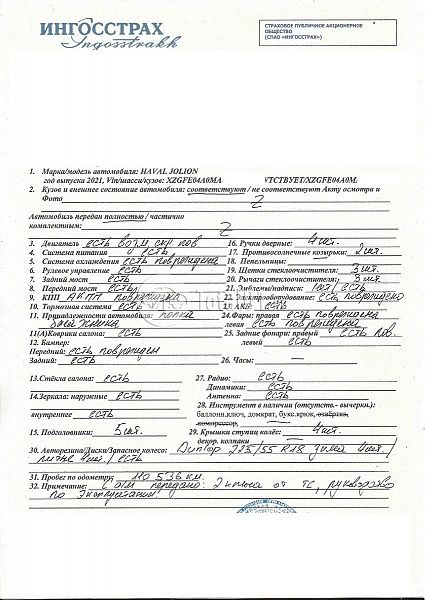 ИНГОССТРАХ
Ingosstrakh
СТРАХОВОЕ ПУБЛИЧНОЕ АКЦИОНЕРНОЕ
ОБЩЕСТВО
(СПАО «ИНГОССТРАХ»)
1. Марка/модель автомобиля: HAVAL JOLION
год выпуска 2021, Vin/шасси/кузов: XZGFE04A0MA VTCTBYET/XZGFE04A0M.
2. Кузов и внешнее состояние автомобиля: соответствуют / не соответствуют Акту осмотра и
Фото
Автомобиль передан полностью / частично
комплектным:
3. Двигатель есть возм. скр. пов 16. Ручки дверные: 4 шт.
4. Система питания есть 17. Противосолнечные козырьки: 2 шт.
5. Система охлаждения есть повреждена 18. Пепельницы:
6. Рулевое управление есть 19. Щетки стеклоочистителя: 3 шт.
7. Задний мост есть 20. Рычаги стеклоочистителя: 3 шт.
8. Передний мост есть 21. Эмблемы/надписи: 1 шт / есть
9. КПП АКПП повреждена 22. Электрооборудование: есть повреждено
10. Тормозная система есть есть
11. Принадлежности автомобиля: полка 24.Фары: правая есть повреждена
багажника левая есть повреждена
11(А)Коврики салона: есть 25. Задние фонари: правый есть пов.
12. Бампер: левый есть
Передний: есть поврежден
Задний: есть 26. Часы:
13.Стёкла салона: есть 27. Радио: есть
Динамики: есть
14.Зеркала: наружные есть Антенна: есть
28. Инструмент в наличии (отсутств.- вычерки.):
внутреннее есть баллонн.ключ, домкрат, букс.крюк, отвёртка,
компрессор,
15. Подголовники: 5 шт. 29. Крышки ступиц колёс: 4 шт.
декор. колпаки
30. Авторезина/Диски/Запасное колесо: 225/55 R18 зима 4 шт. /
литые 4 шт. / есть
31. Пробег по одометру: 110 536 км.
32. Примечание: с а/м передано: 2 ключа от ТС, руководство
по эксплуатации